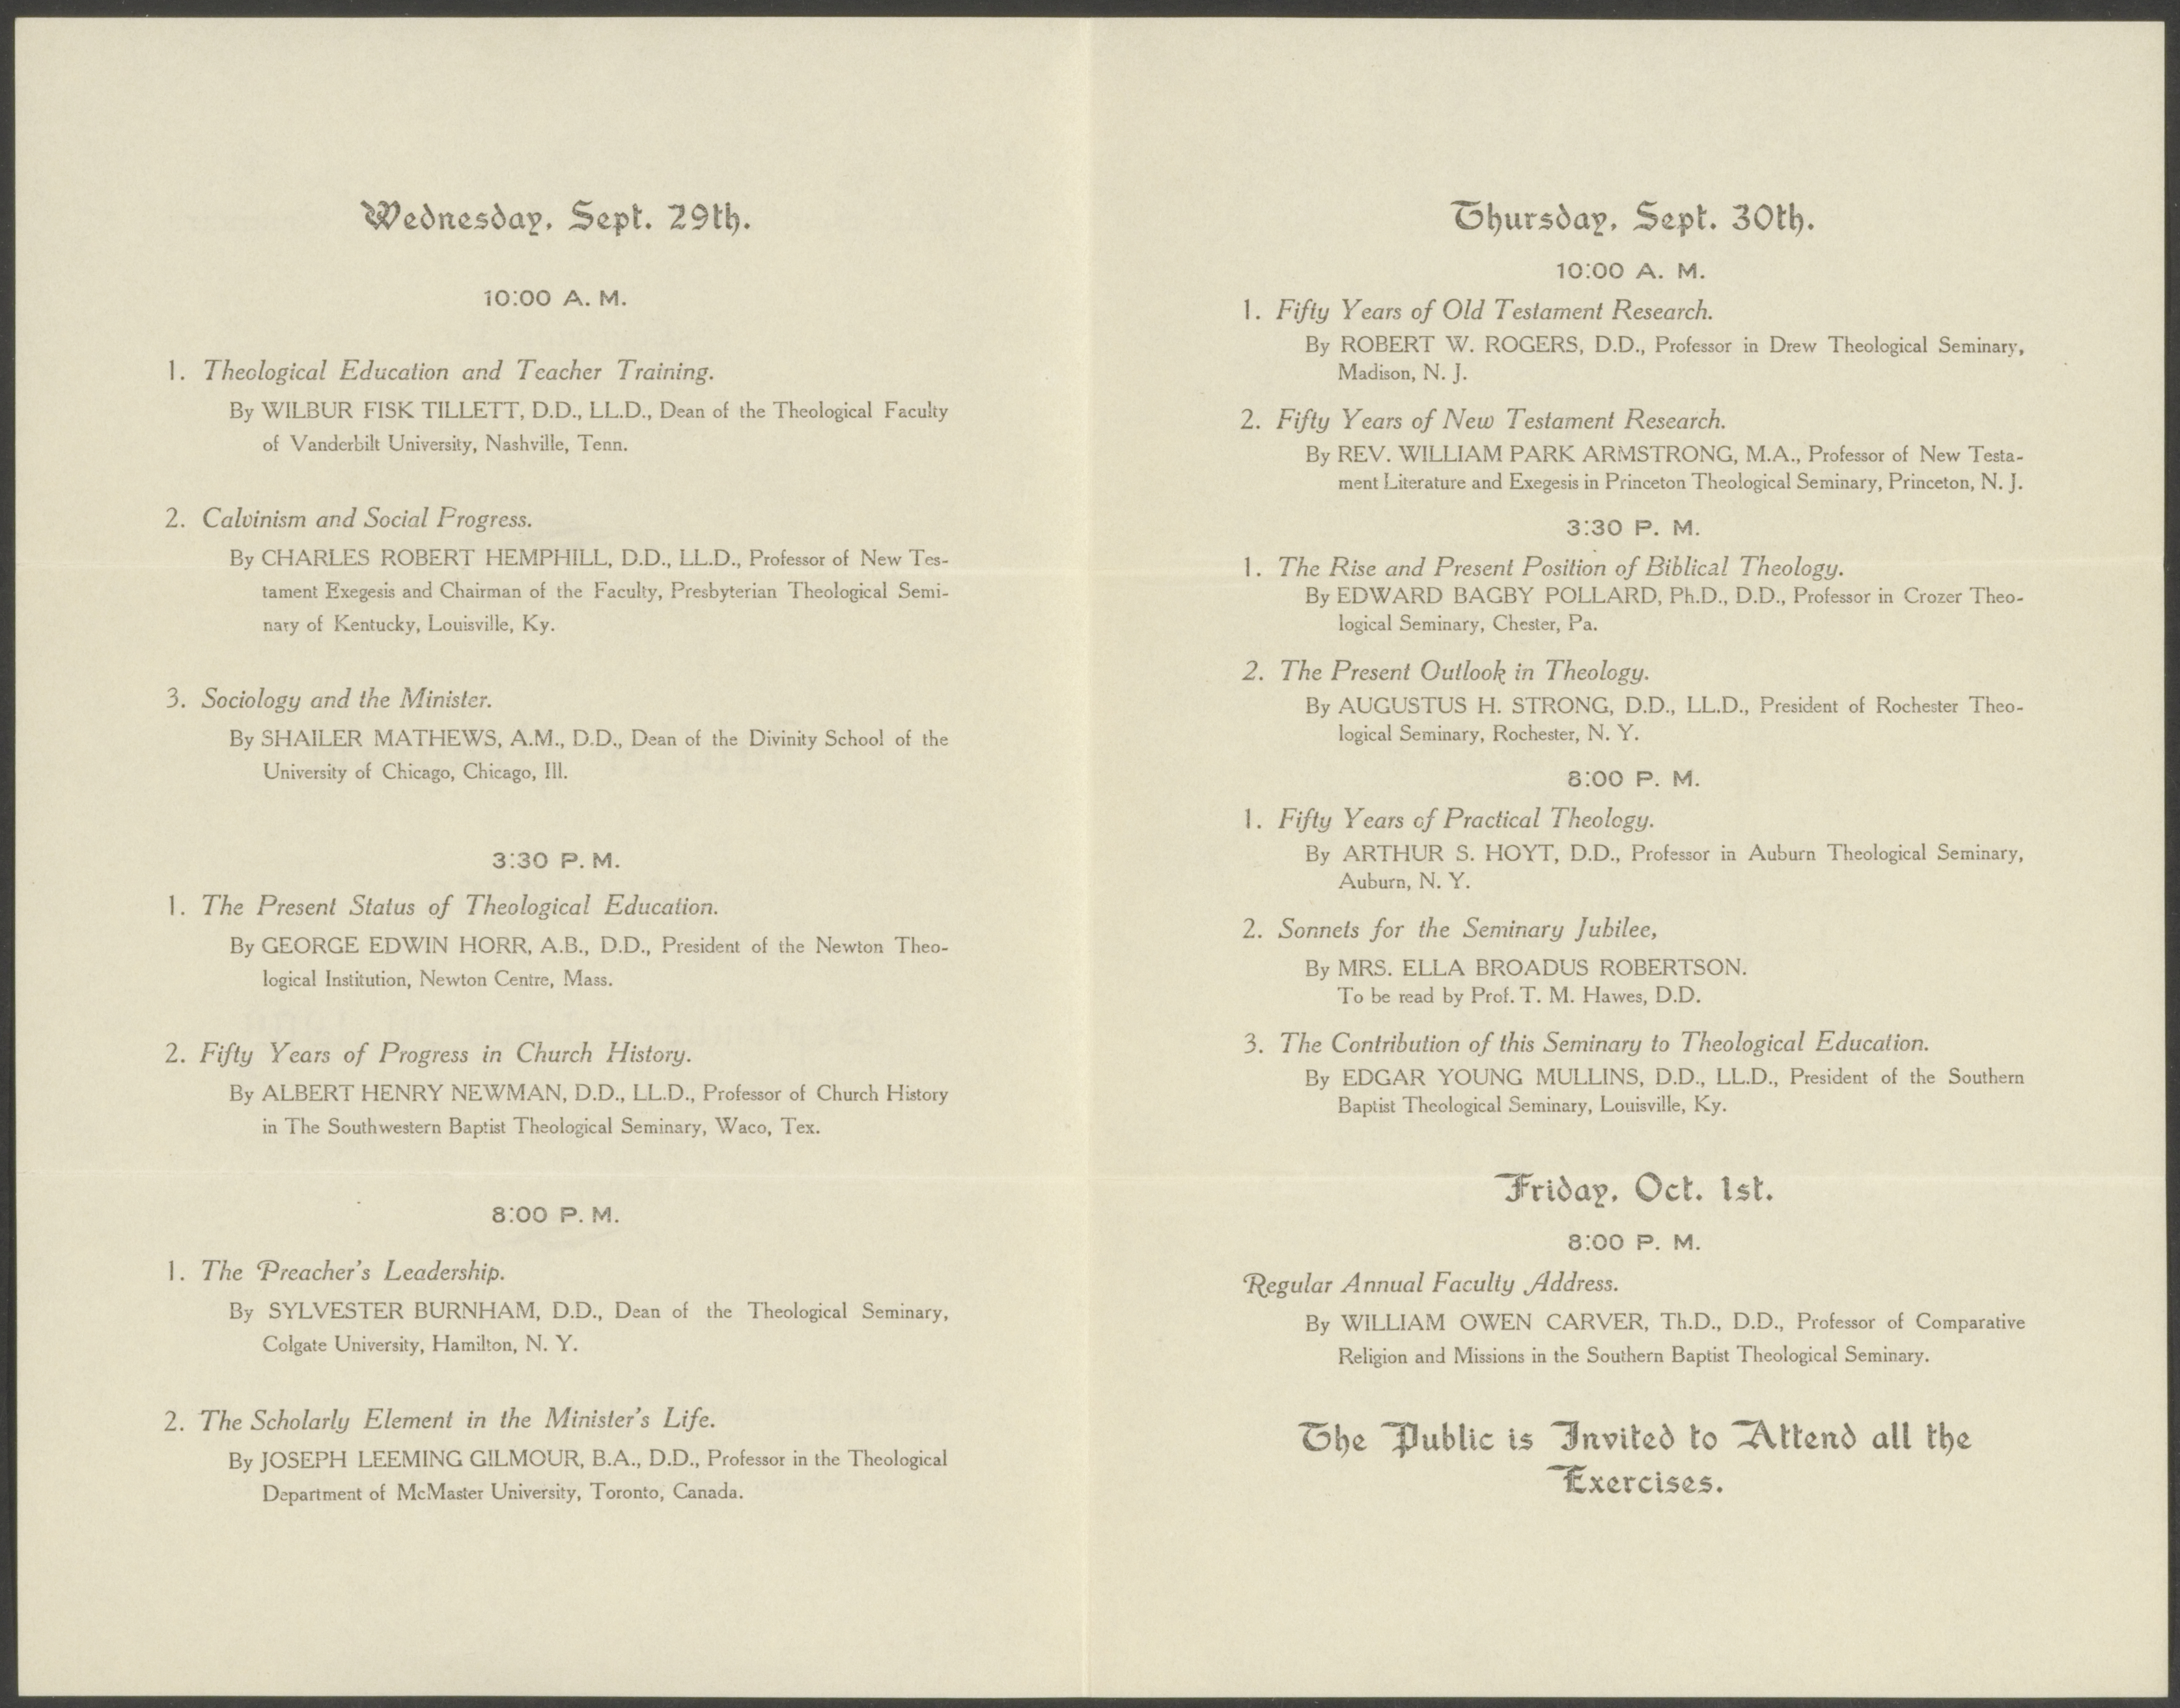 Wednesday, Sept. 29th.
10:00 A. M.
1. Theological Education and Teacher Training.
By WILBUR FISK TILLETT, D.D., LL.D., Dean of the Theological Faculty
of Vanderbilt University, Nashville, Tenn.
2. Calvinism and Social Progress.
By CHARLES ROBERT HEMPHILL, D.D., LL.D., Professor of New Tes-
tament Exegesis and Chairman of the Faculty, Presbyterian Theological Semi-
nary of Kentucky, Louisville, Ky.
3. Sociology and the Minister.
By SHAILER MATHEWS, A.M., D.D., Dean of the Divinity School of the
University of Chicago, Chicago, Ill.
3:30 P. M.
1. The Present Status of Theological Education.
By GEORGE EDWIN HORR, A.B., D.D., President of the Newton Theo-
logical Institution, Newton Centre, Mass.
2. Fifty Years of Progress in Church History.
By ALBERT HENRY NEWMAN, D.D., LL.D., Professor of Church History
in The Southwestern Baptist Theological Seminary, Waco, Tex.
8:00 P. M.
1. The Preacher's Leadership.
By SYLVESTER BURNHAM, D.D., Dean of the Theological Seminary,
Colgate University, Hamilton, N. Y.
2. The Scholarly Element in the Minister's Life.
By JOSEPH LEEMING GILMOUR, B.A., D.D., Professor in the Theological
Department of McMaster University, Toronto, Canada.
Thursday, Sept. 30th.
10:00 A. M.
1. Fifty Years of Old Testament Research.
By ROBERT W. ROGERS, D.D., Professor in Drew Theological Seminary,
Madison, N. J.
2. Fifty Years of New Testament Research.
By REV. WILLIAM PARK ARMSTRONG, M.A., Professor of New Testa-
ment Literature and Exegesis in Princeton Theological Seminary, Princeton, N. J.
3:30 P. M.
1. The Rise and Present Position of Biblical Theology.
By EDWARD BAGBY POLLARD, Ph.D., D.D., Professor in Crozer Theo-
logical Seminary, Chester, Pa.
2. The Present Outlook in Theology.
By AUGUSTUS H. STRONG, D.D., LL.D., President of Rochester Theo-
logical Seminary, Rochester, N. Y.
8:00 P. M.
1. Fifty Years of Practical Theology.
By ARTHUR S. HOYT, D.D., Professor in Auburn Theological Seminary,
Auburn, N. Y.
2. Sonnets for the Seminary Jubilee,
By MRS. ELLA BROADUS ROBERTSON.
To be read by Prof. T. M. Hawes, D.D.
3. The Contribution of this Seminary to Theological Education.
By EDGAR YOUNG MULLINS, D.D., LL.D., President of the Southern
Baptist Theological Seminary, Louisville, Ky.
Friday, Oct. 1st.
8:00 P. M.
Regular Annual Faculty Address.
By WILLIAM OWEN CARVER, Th.D., D.D., Professor of Comparative
Religion and Missions in the Southern Baptist Theological Seminary.
The Public is Invited to Attend all the
Exercises.